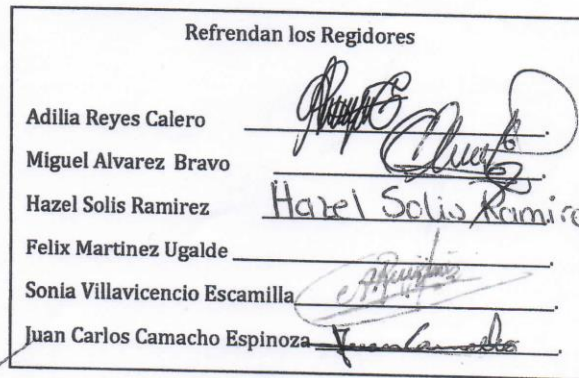 Refrendan los Regidores
Adilia Reyes Calero
Miguel Alvarez Bravo
Hazel Solis Ramirez Hazel Solis Ramire
Felix Martinez Ugalde
Sonia Villavicencio Escamilla
Juan Carlos Camacho Espinoza Juan Camacho